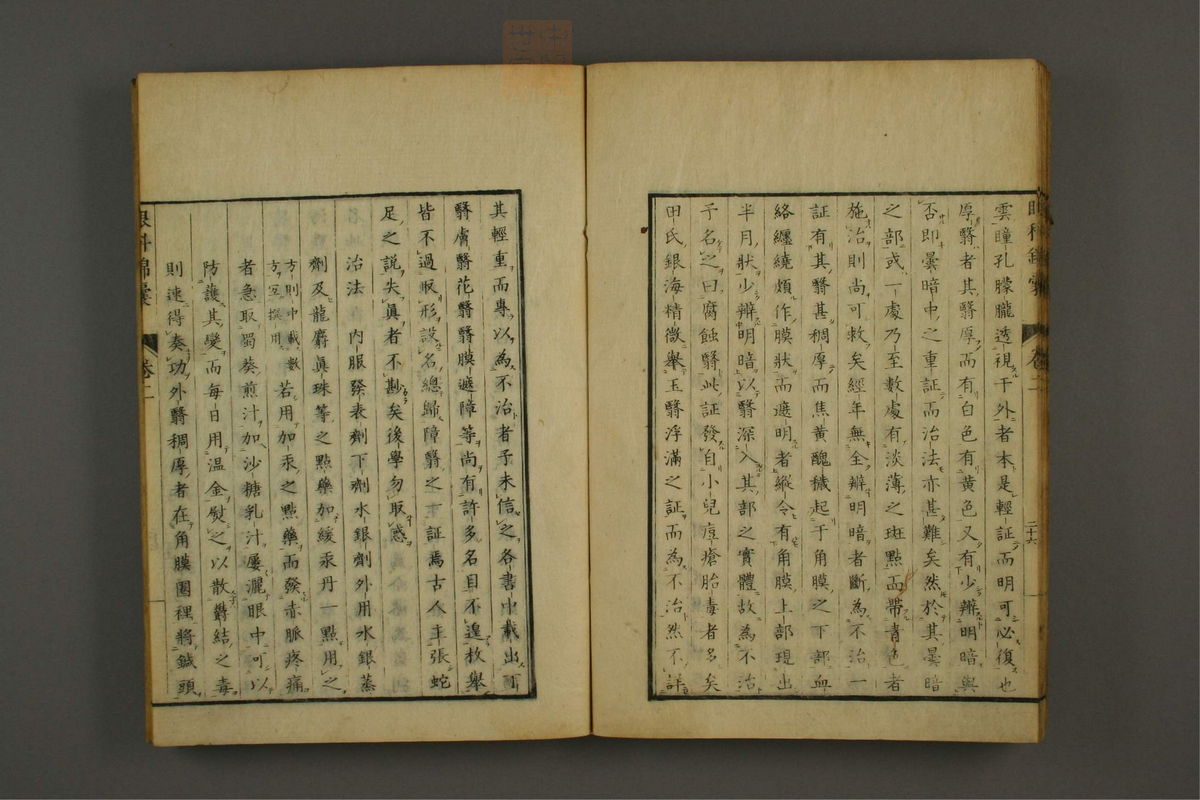 雲瞳孔朦朧透視于外者本是輕証而明可必復也
厚翳者其翳厚而有白色有黄色又有少辨明暗與
否即曇暗中之重証而治法亦甚難矣然於其曇暗
之部或一處乃至數處有淡薄之斑點而帶青色者
施治則尚可救矣經年無全辨明暗者斷為不治一
証有其翳甚稠厚而焦黄醜穢起于角膜之下部血
絡纏繞頗作膜狀而遮明者縱令有角膜上部現出
半月狀少辨明暗以翳深入其部之實體故為不治
予名之曰腐蝕翳此証發自小兒痘瘡胎毒者多矣
田氏銀海精微舉玉翳浮滿之証而為不治然不詳
眼科錦囊 卷二 二十六
其輕重而專以為不治者予未信之各書中載出
翳膚翳花翳翳膜遮障等尚有許多名目不遑枚舉
皆不過取形設名總歸障翳之重証焉古人主張蛇
足之說失眞者不尠矣後學勿取惑
治法 内服發表劑下劑水銀劑外用水銀蒸
劑及龍麝眞珠等之點藥加緩汞丹一點用之
方則中載數方宜撰用 若用加汞之點藥而發赤脈疼痛
者急取蜀葵煎汁加沙糖乳汁屢灑眼中可以
防護其變而每日用温金熨之以散鬱結之毒
則速得奏功外翳稠厚者在角膜圍裡將鍼頭
眼科錦囊 卷二